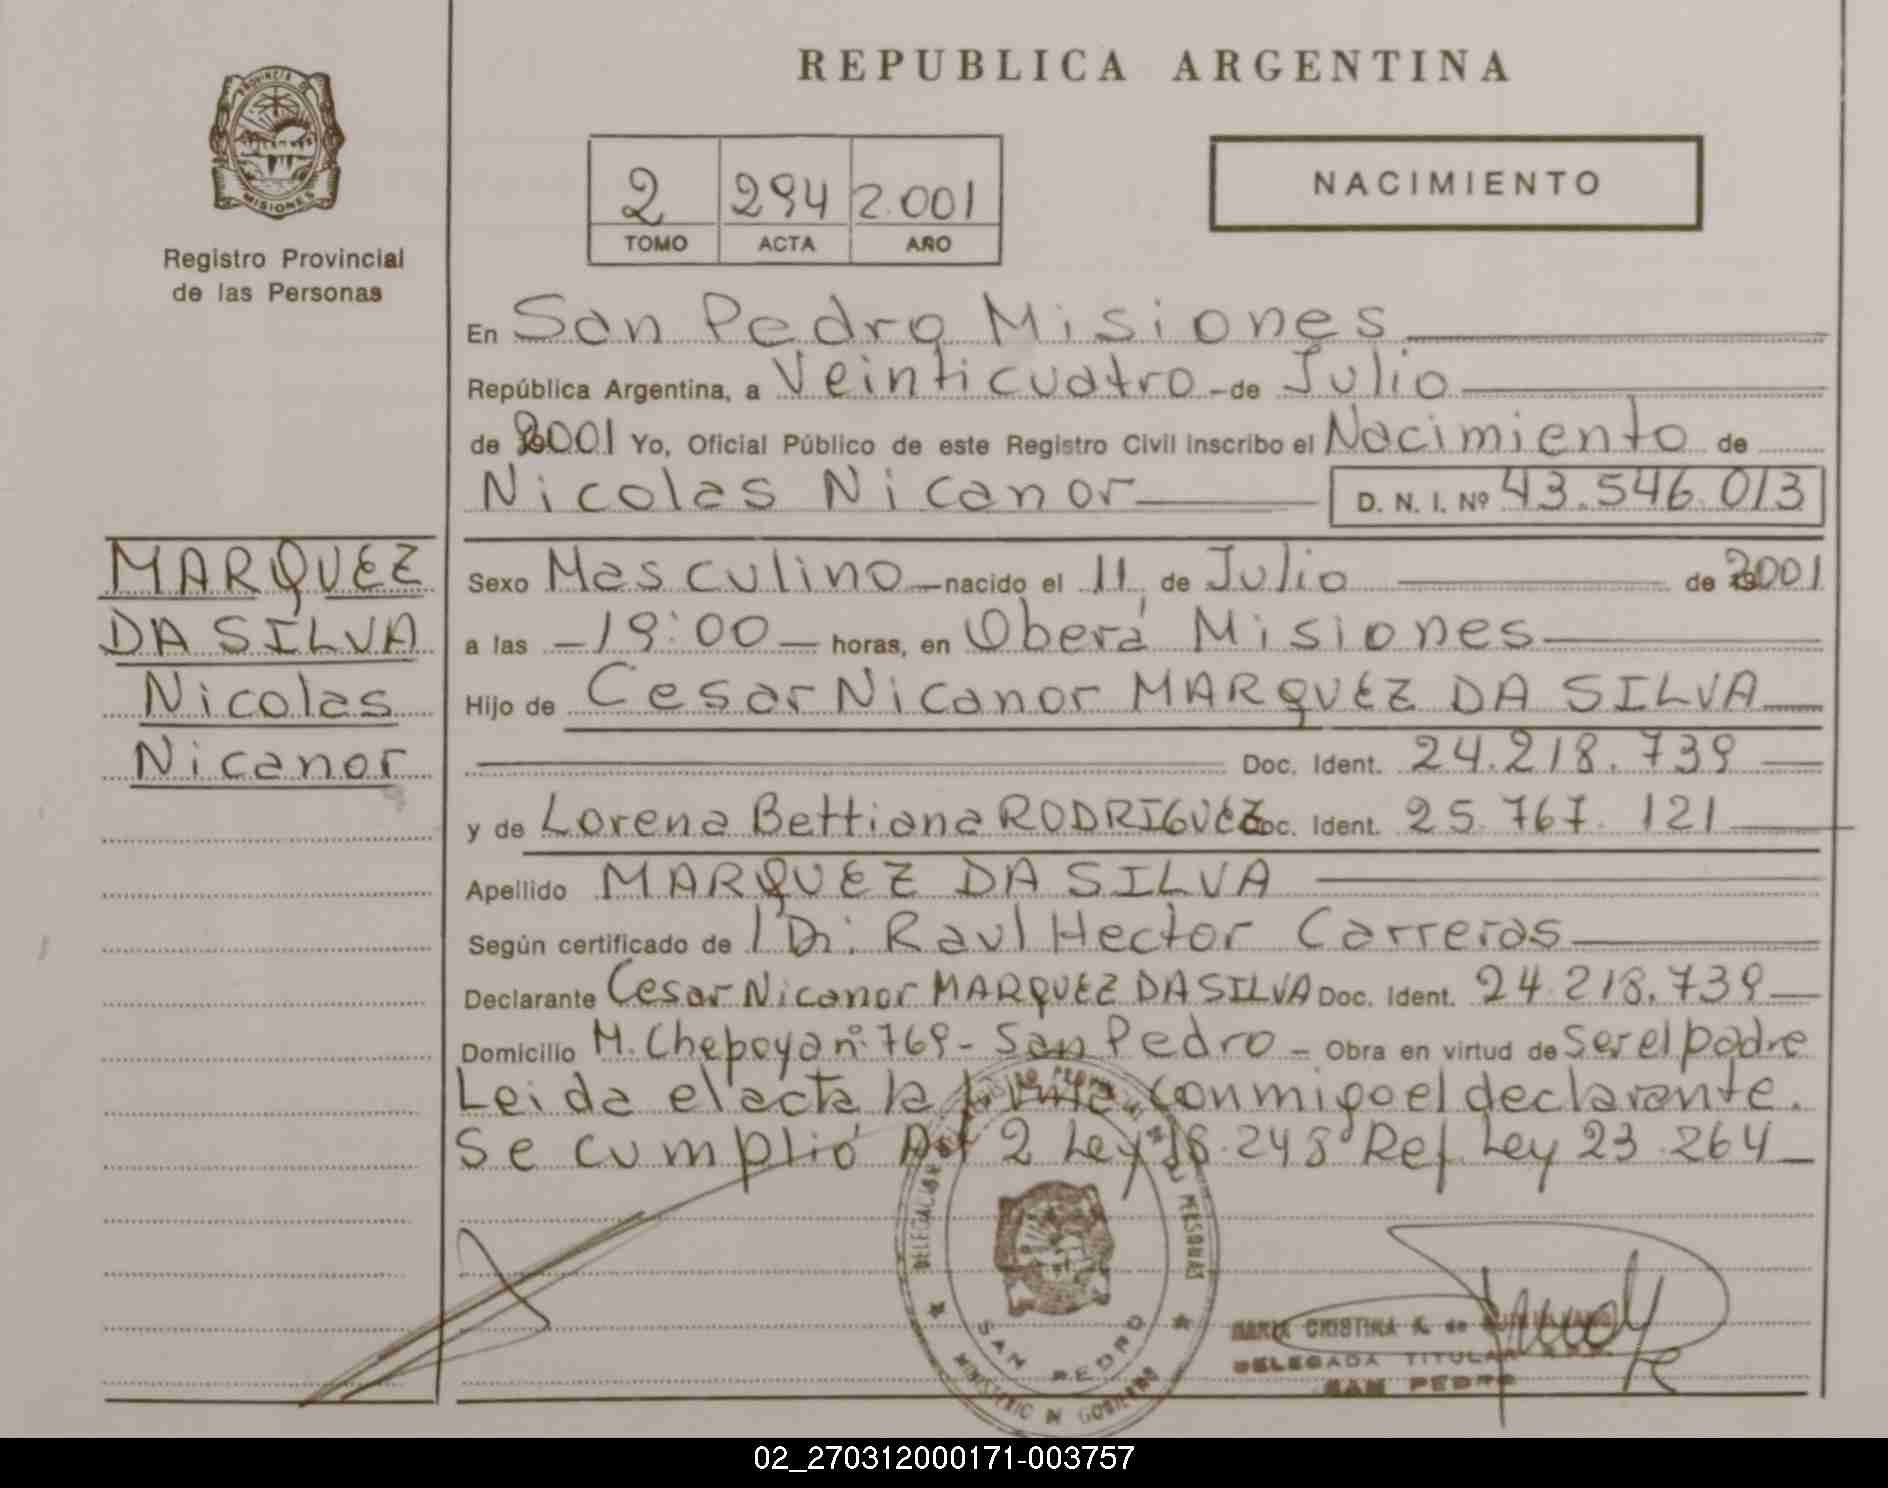 REPUBLICA ARGENTINA
PROVINCIA DE
MISIONES
Registro Provincial
de las Personas
2 294 2.001
TOMO ACTA AÑO
NACIMIENTO
En San Pedro Misiones
República Argentina, a Veinticuatro de Julio
de 2001 Yo, Oficial Público de este Registro Civil inscribo el Nacimiento de
Nicolas Nicanor D. N. I. Nº 43.546.013
MARQUEZ
DA SILVA
Nicolas
Nicanor
Sexo Masculino nacido el 11 de Julio de 2001
a las 19:00 horas, en Oberá Misiones
Hijo de Cesar Nicanor MARQUEZ DA SILVA
Doc. Ident. 24.218.739
y de Lorena Bettiana RODRIGUEZ Doc. Ident. 25.767.121
Apellido MARQUEZ DA SILVA
Según certificado de Dr. Raul Hector Carreras
Declarante Cesar Nicanor MARQUEZ DA SILVA Doc. Ident. 24.218.739
Domicilio M. Chepoya nº 769 - San Pedro - Obra en virtud de Ser el padre
Leida el acta la firma conmigo el declarante.
Se cumplió Art 2 Ley 18.248 Ref. Ley 23.264
SAN PEDRO
MINISTERIO DE GOBIERNO
MARIA CRISTINA A. de
DELEGADA TITULAR
SAN PEDRO
02_270312000171-003757